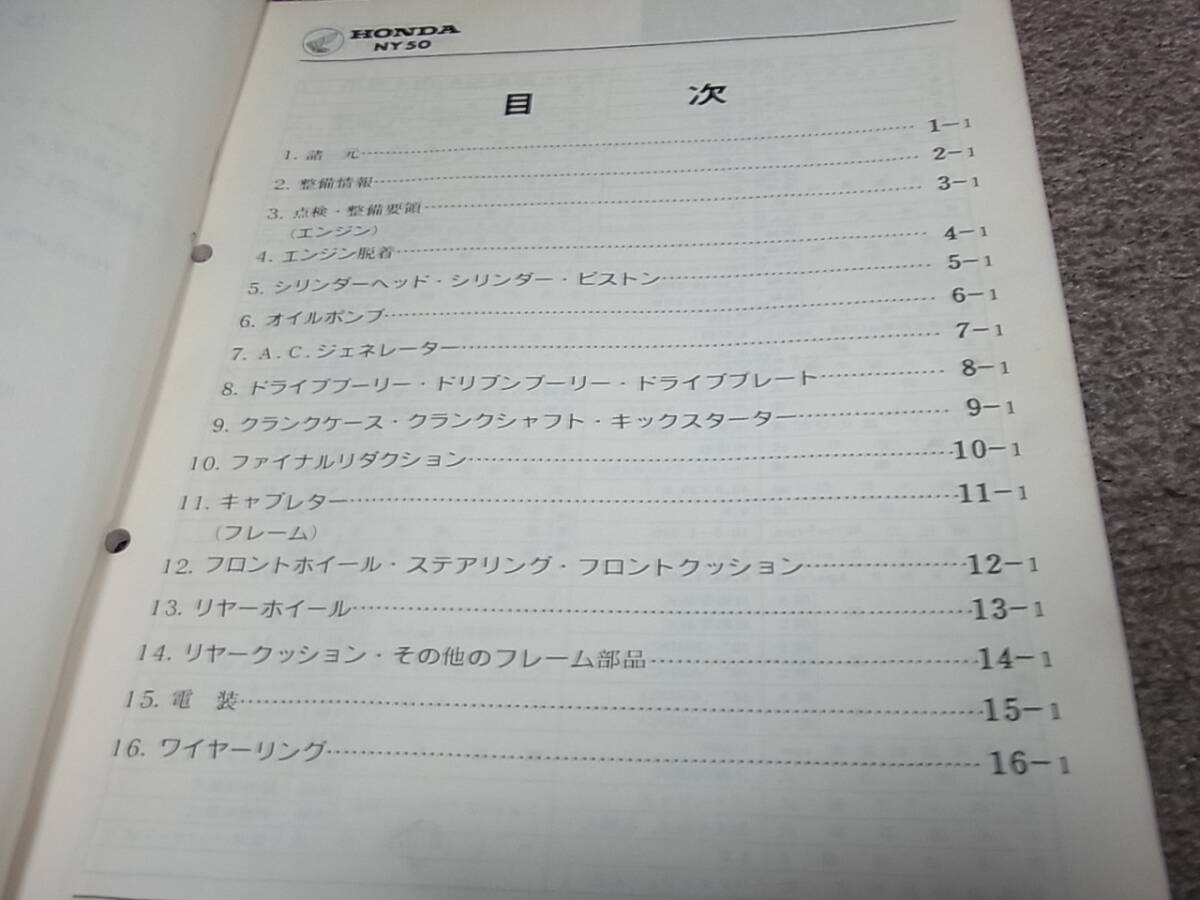 HONDA
NY50
目 次
1. 諸 元 1-1
2. 整備情報 2-1
3. 点検・整備要領 3-1
(エンジン)
4. エンジン脱着 4-1
5. シリンダーヘッド・シリンダー・ピストン 5-1
6. オイルポンプ 6-1
7. A.C.ジェネレーター 7-1
8. ドライブプーリー・ドリブンプーリー・ドライブプレート 8-1
9. クランクケース・クランクシャフト・キックスターター 9-1
10. ファイナルリダクション 10-1
11. キャブレター 11-1
(フレーム)
12. フロントホイール・ステアリング・フロントクッション 12-1
13. リヤーホイール 13-1
14. リヤークッション・その他のフレーム部品 14-1
15. 電 装 15-1
16. ワイヤーリング 16-1